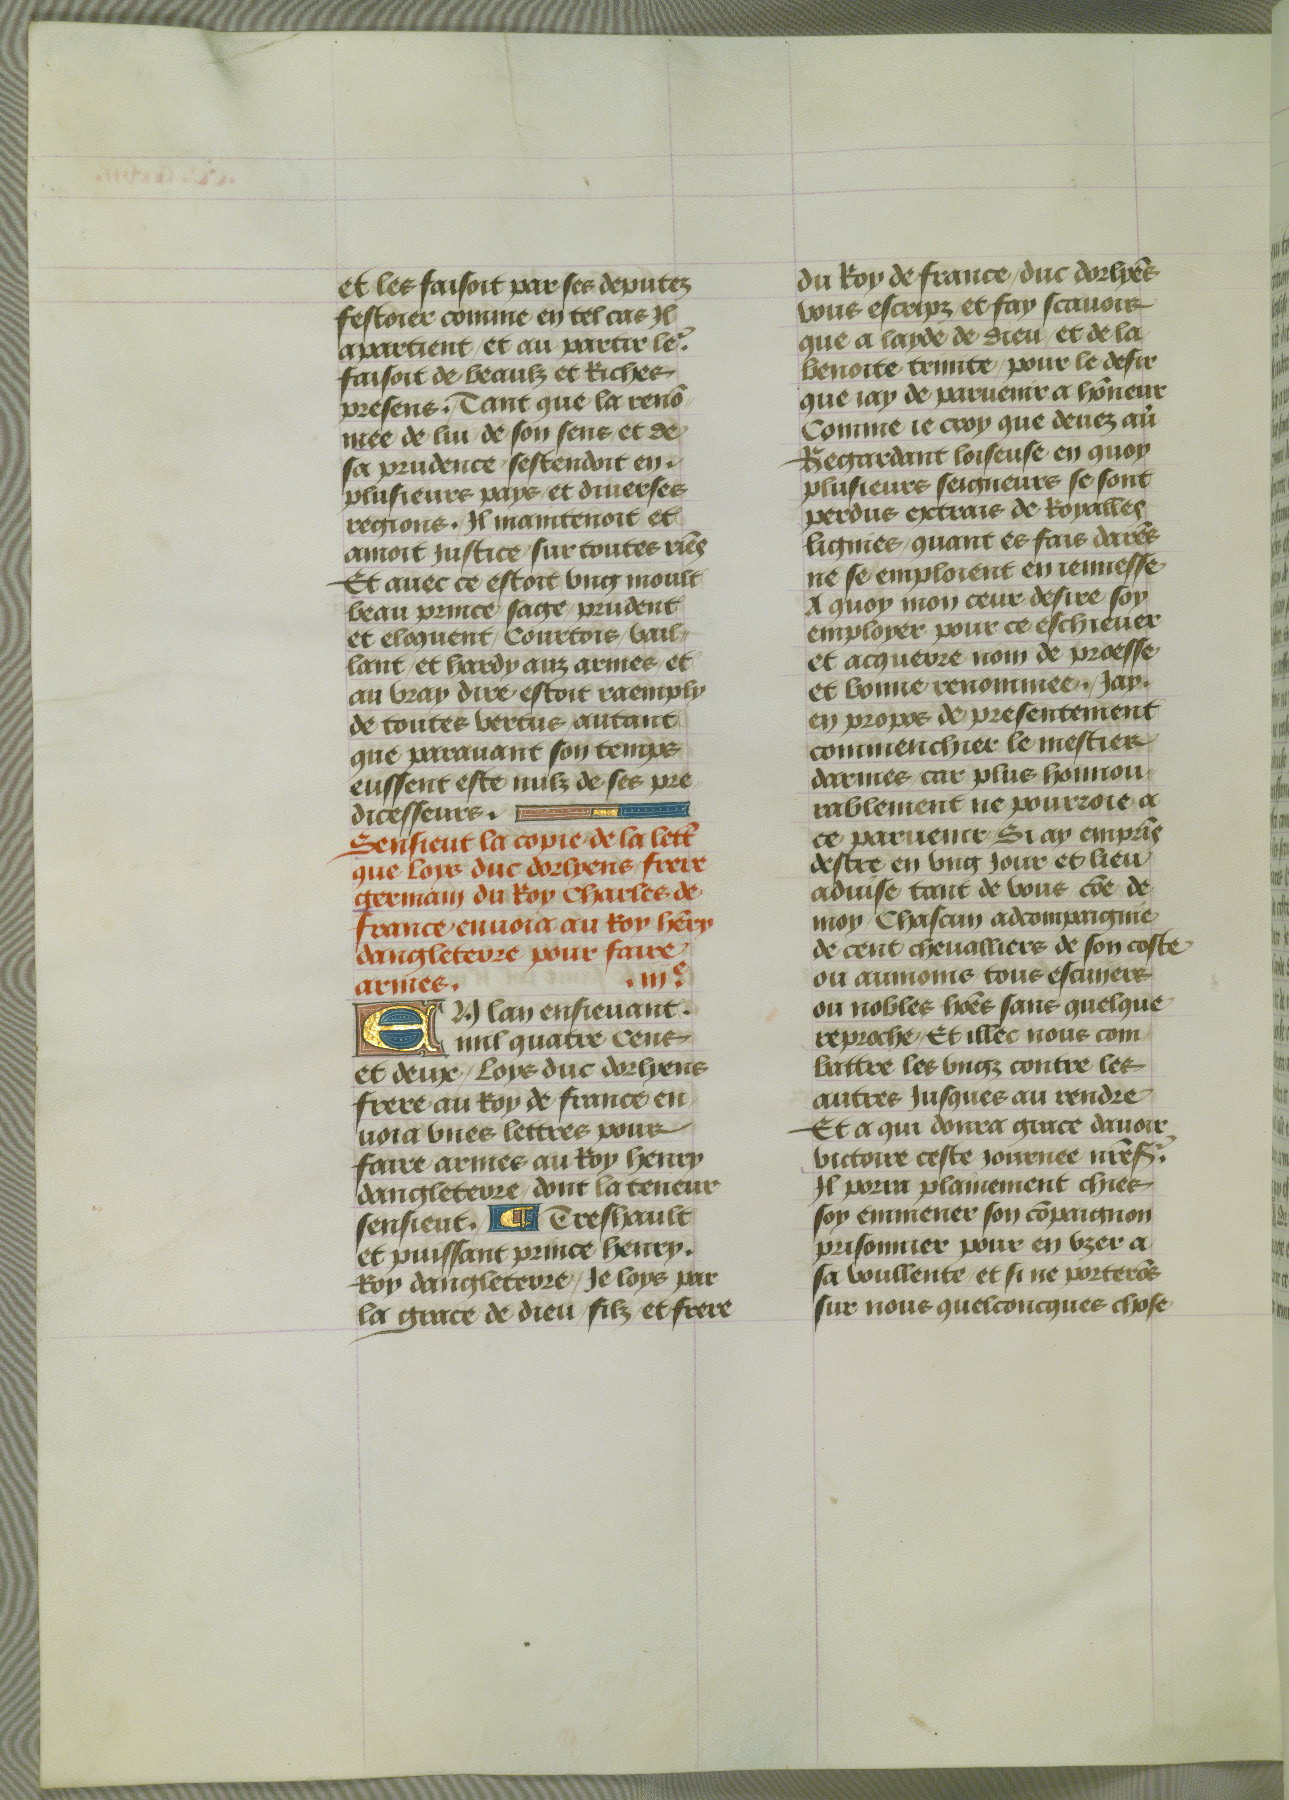 et les faisoit par ses deputez
festoier comme en tel cas Il
apartient / et au partir le².
faisoit de beaulz et Riches
presens. Tant que la renō
mee de lui / de son sens et de
sa prudence / sestendoit en.
plusieurs pays / et diuerses
regions. Il maintenoit et
amoit Justice / sur toutes riēs
Et auec ce estoit vng moult
beau prince / sage / prudent
et eloquent / Courtois / vail
lant / et hardy auz armes / et
au vray dire / estoit raemply
de toutes vertus autant
que parauant son temps
eussent este nulz de ses pre
dicesseurs.
Sensieut la copie de la lettr̄
que Loys duc dorlyens / frere
germain du Roy Charles de
france / enuoia au Roy hēry
dangleterre pour faire
armes. .iiiᵉ.
EN lan ensieuant.
mil quatre Cens
et deux / Loys duc dorlyens
frere au Roy de france en
uoia vnes lettres pour
faire armes au Roy henry
dangleterre / dont la teneur
sensieut. ¶ Treshault
et puissant prince henry.
Roy dangleterre / Je loys par
la grace de dieu / filz / et frere
du Roy de france / duc dorlyēs
vous escripz / et fay scauoir
que a layde de dieu / et de la
benoite trinite / pour le desir
que iay de paruenir a hōneur
Comme ie croy que deuez aū
Regardant loiseuse en quoy
plusieurs seigneurs se sont
perdus extrais de Royalles
lignies / quant es fais darēs
ne se emploient en iennesse
A quoy mon ceur desire soy
employer pour ce eschieuer
et acquerre nom de proesse
et bonne renommee. Jay.
en propos de presentement
commenchier le mestier
darmes / car plus honnou
rablement ne pourroie a
ce paruenir / Si ay empris
destre en vng Jour et lieu
aduise tant de vous cōe de
moy / Chascun adcompaignie
de cent cheualliers de son coste
ou aumoins tous escuiers
ou nobles hōes sans quelque
reproche / Et illec nous com
battre les vngz contre les
autres Jusques au rendre
Et a qui donra grace dauoir
victoire ceste iournee nr̄e s².
Il porra plainement chies
soy emmener son cōpaignon
prisonnier pour en vzer a
sa voullente / et si ne porterōs
sur nous quelconcques chose